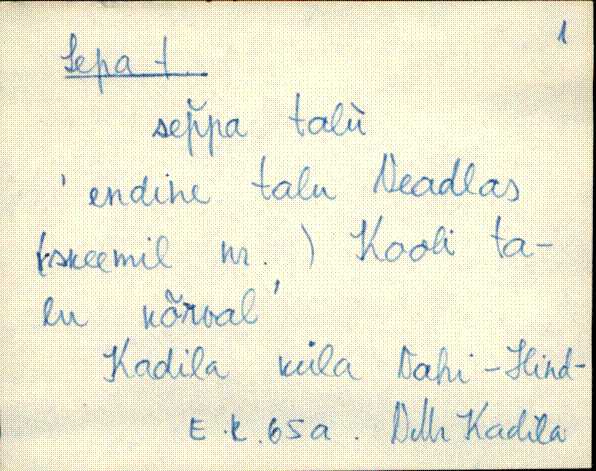 1
Sepa t
sep̆pa talù
'endine talu Neadlas
(skeemil nr. ) Kooli ta-
lu kõrval'
Kadila küla
E.K. 65a. Kadila